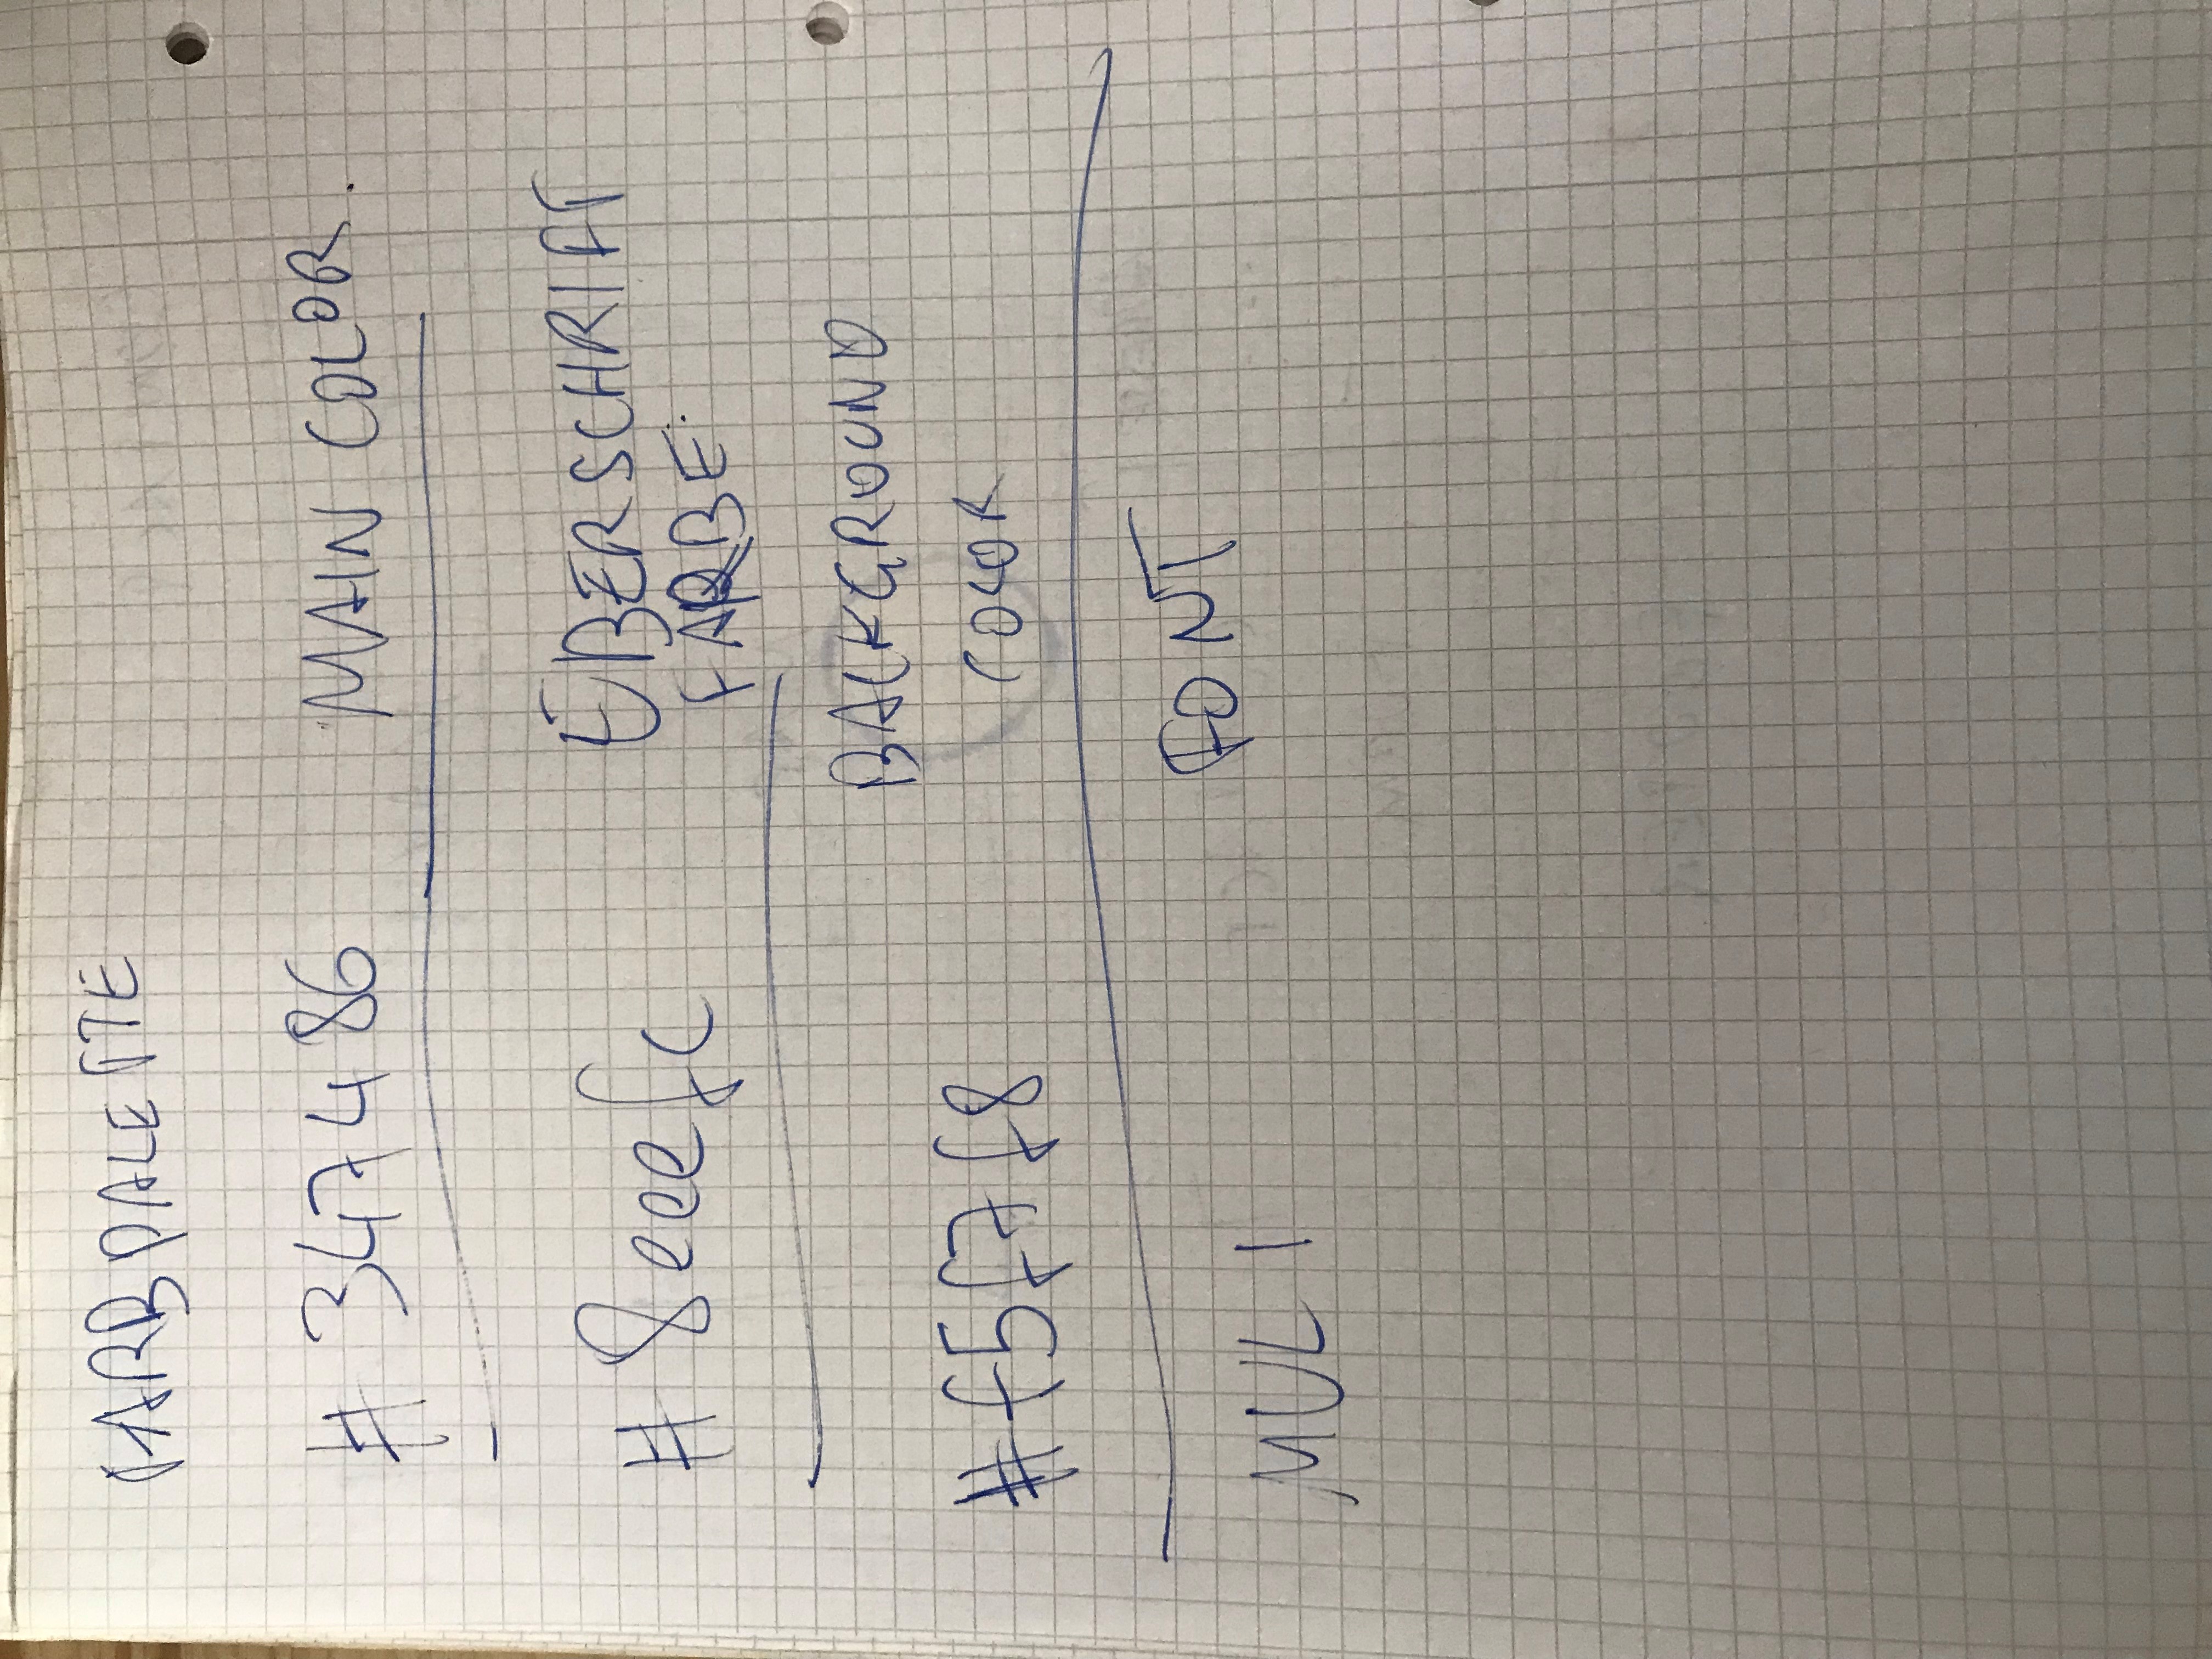 FARBPALETTE
# 347486 MAIN COLOR.
# 8eeefc ÜBERSCHRIFT
FARBE.
#f5f7f8 BACKGROUND
COLOR
MULI FONT